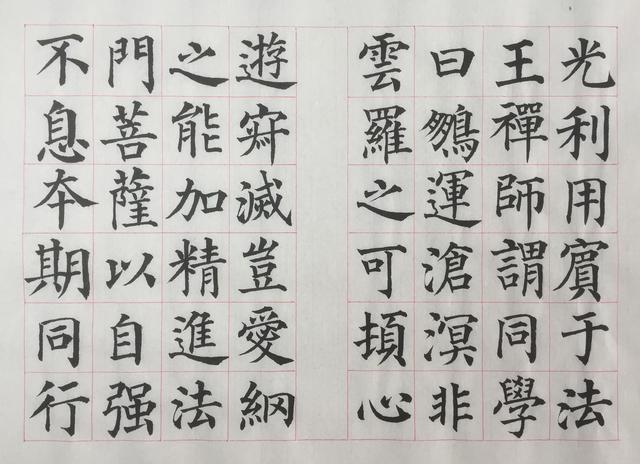 光利用賓于法
王禪師謂同學
曰鵬運滄溟非
雲羅之可頓心
遊寂滅豈愛網
之能加精進法
門菩薩以自强
不息本期同行